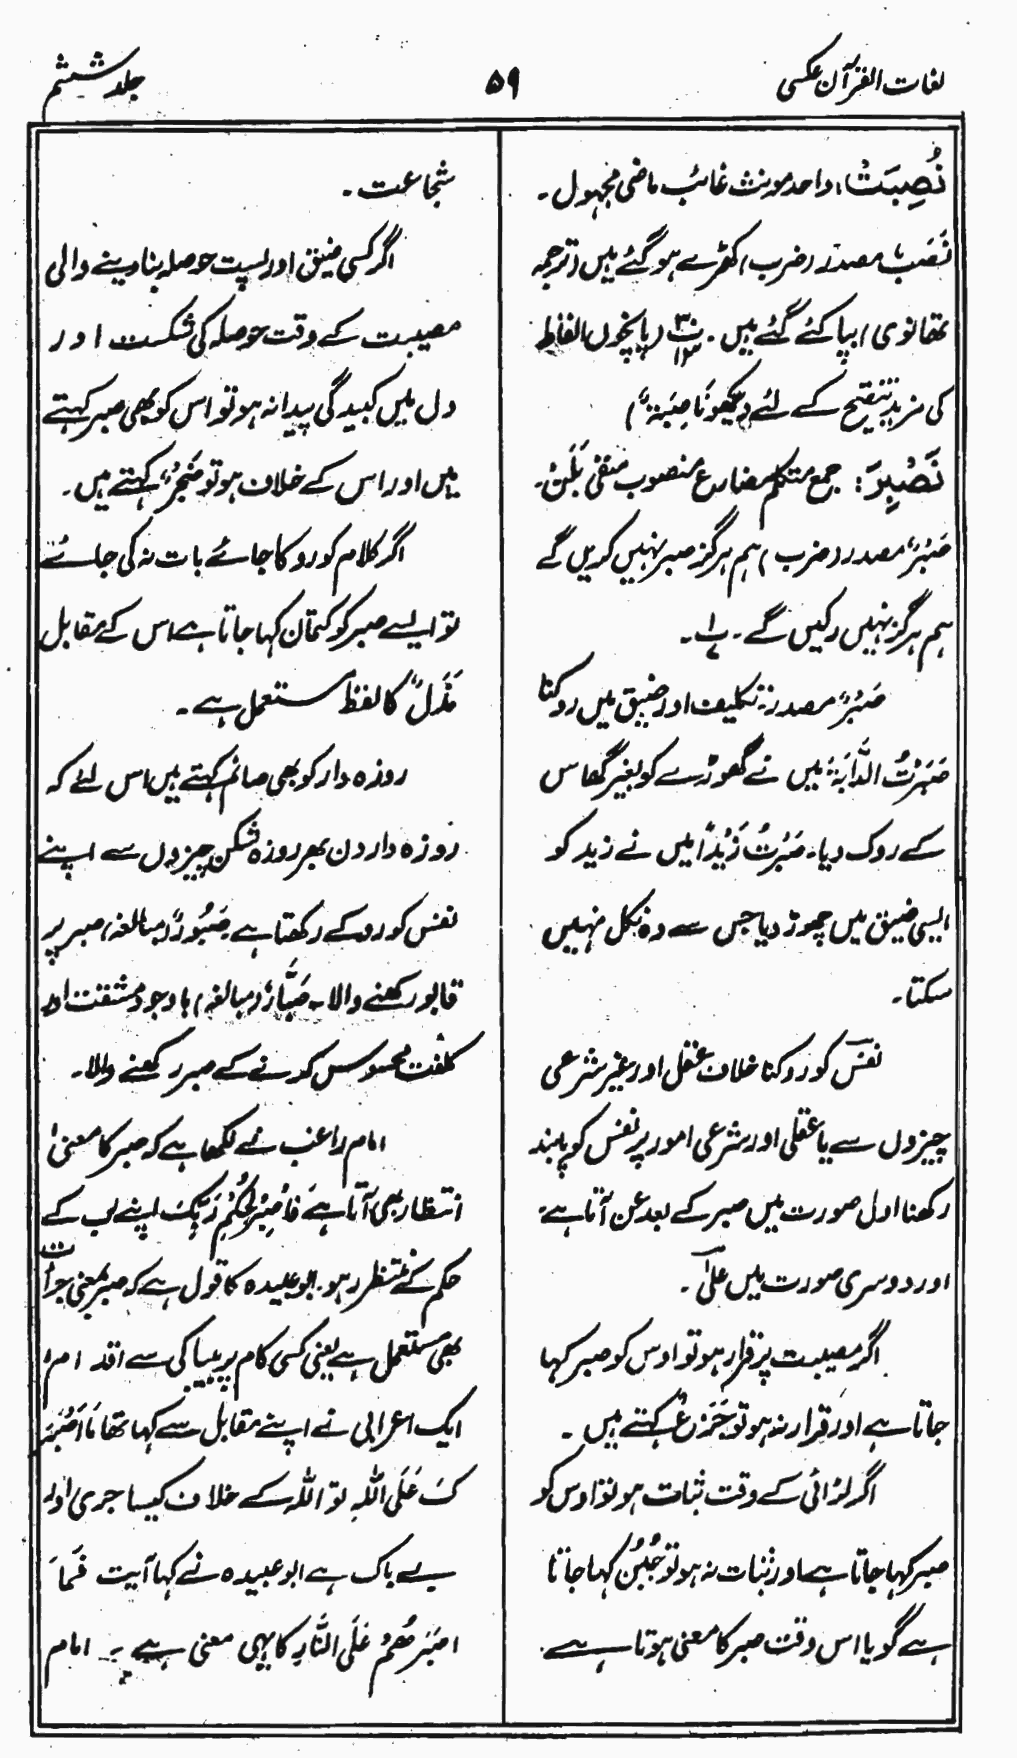 لغات القرآن عکسی
۵۹
جلد ششم
نُصِبَتْ: واحد مونث غائب ماضی مجہول۔
نَصْبٌ مصدر (ضرب) کھڑے ہو گئے ہیں (ترجمہ
تھانوی) بپا کئے گئے ہیں۔ پ ۳۰ ۱۳ (پانچوں الفاظ
کی مزید تنقیح کے لئے دیکھو نَاصِبَۃٌ)
نَصْبِرَ: جمع متکلم مضارع منصوب منفی بَلَنْ۔
صَبْرٌ مصدر (ضرب) ہم ہرگز صبر نہیں کریں گے
ہم ہرگز نہیں رکیں گے۔ پ
صَبْرٌ مصدر: تکلیف اور ضیق میں روکنا
صَبَرْتُ الدَّابَۃَ میں نے گھوڑے کو بغیر گھاس
کے روک دیا۔ صَبَرْتُ زَیْدًا میں نے زید کو
ایسی ضیق میں چھوڑ دیا جس سے وہ نکل نہیں
سکتا۔
نفس کو روکنا خلاف عقل اور غیر شرعی
چیزوں سے یا عقلی اور شرعی امور پر نفس کو پابند
رکھنا اول صورت میں صبر کے بعد عن آتا ہے
اور دوسری صورت میں علیٰ۔
اگر مصیبت پر قرار ہو تو اوس کو صبر کہا
جاتا ہے اور قرار نہ ہو تو جَزَعٌ کہتے ہیں۔
اگر لڑائی کے وقت ثبات ہو تو اوس کو
صبر کہا جاتا ہے اور ثبات نہ ہو تو جُبُن کہا جاتا
ہے گویا اس وقت صبر کا معنی ہوتا ہے
شجاعت۔
اگر کسی ضیق اور پست حوصلہ بنا دینے والی
مصیبت کے وقت حوصلہ کی شکست اور
دل میں کبیدگی پیدا نہ ہو تو اس کو بھی صبر کہتے
ہیں اور اس کے خلاف ہو تو ضَجَرٌ کہتے ہیں۔
اگر کلام کو روکا جائے بات نہ کی جائے
تو ایسے صبر کو کتمان کہا جاتا ہے اس کے مقابل
مَذَلٌ کا لفظ مستعمل ہے۔
روزہ دار کو بھی صائم کہتے ہیں اس لئے کہ
روزہ دار دن بھر روزہ شکن چیزوں سے اپنے
نفس کو روکے رکھتا ہے صَبُوْرٌ (مبالغہ) صبر پر
قابو رکھنے والا۔ صَبَّارٌ (مبالغہ) باوجود مشقت اور
کلفت محسوس کرنے کے صبر رکھنے والا۔
امام راغب نے لکھا ہے کہ صبر کا معنیٰ
انتظار بھی آتا ہے فَاصْبِرْ لِحُکْمِ رَبِّکَ اپنے رب کے
حکم کے منتظر رہو۔ ابو عبیدہ کا قول ہے کہ صبر بمعنی جرأت
بھی مستعمل ہے یعنی کسی کام پر بیباکی سے اقدام
ایک اعرابی نے اپنے مقابل سے کہا تھا مَا اَصْبَرَ
کَ عَلَی اللّٰہِ تو اللہ کے خلاف کیسا جری اور
بے باک ہے ابو عبیدہ نے کہا آیت فَمَا
اَصْبَرَھُمْ عَلَی النَّارِ کا یہی معنی ہے۔ امام